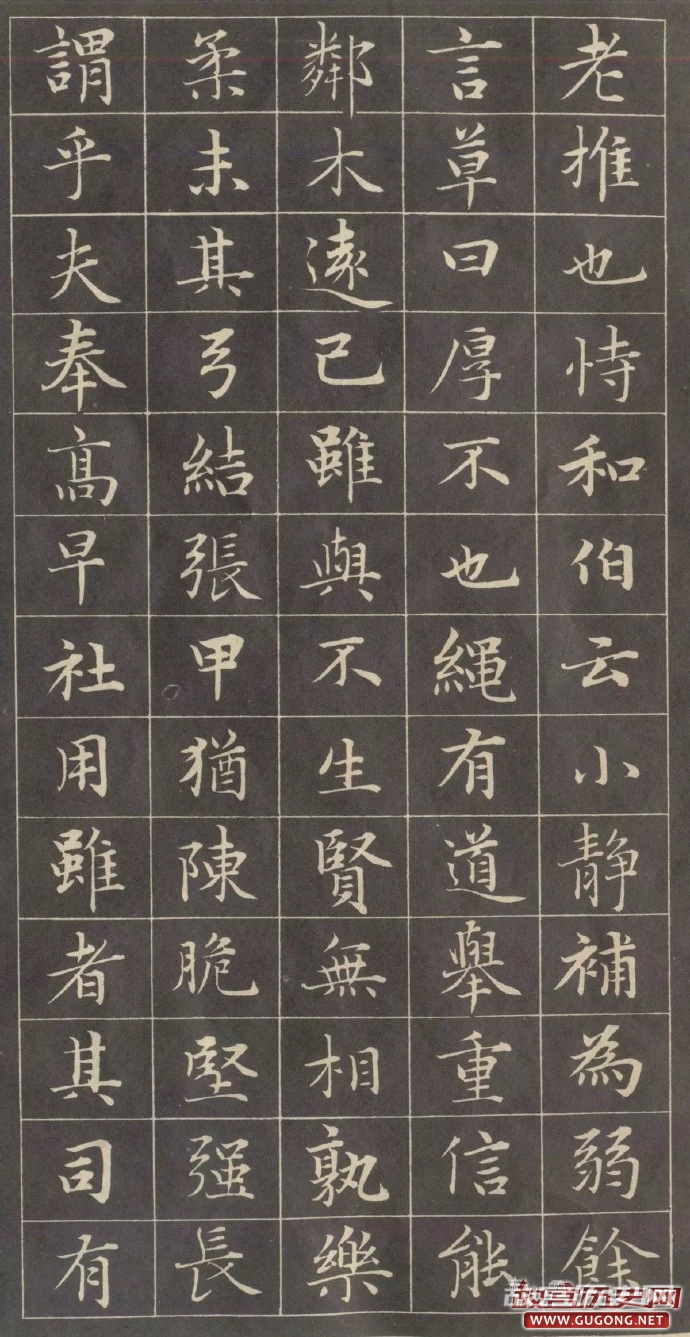 老推也恃和伯云小静補為弱餘
言草曰厚不也繩有道舉重信能
鄰木遠已雖與不生賢無相孰樂
柔未其弓結張甲猶陳脆堅强長
謂乎夫奉高早社用雖者其司有
故宫历史网
WWW.GUGONG.NET